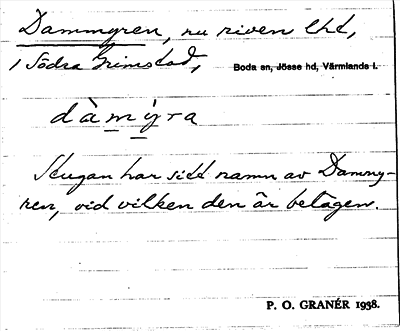 Dammyren, nu riven lht,
i Södra Grimstad,
Boda sn, Jösse hd, Värmlands l.
dàmýra
Stugan har sitt namn av Dammy-
ren, vid vilken den är belägen.
P. O. GRANÉR 1938.